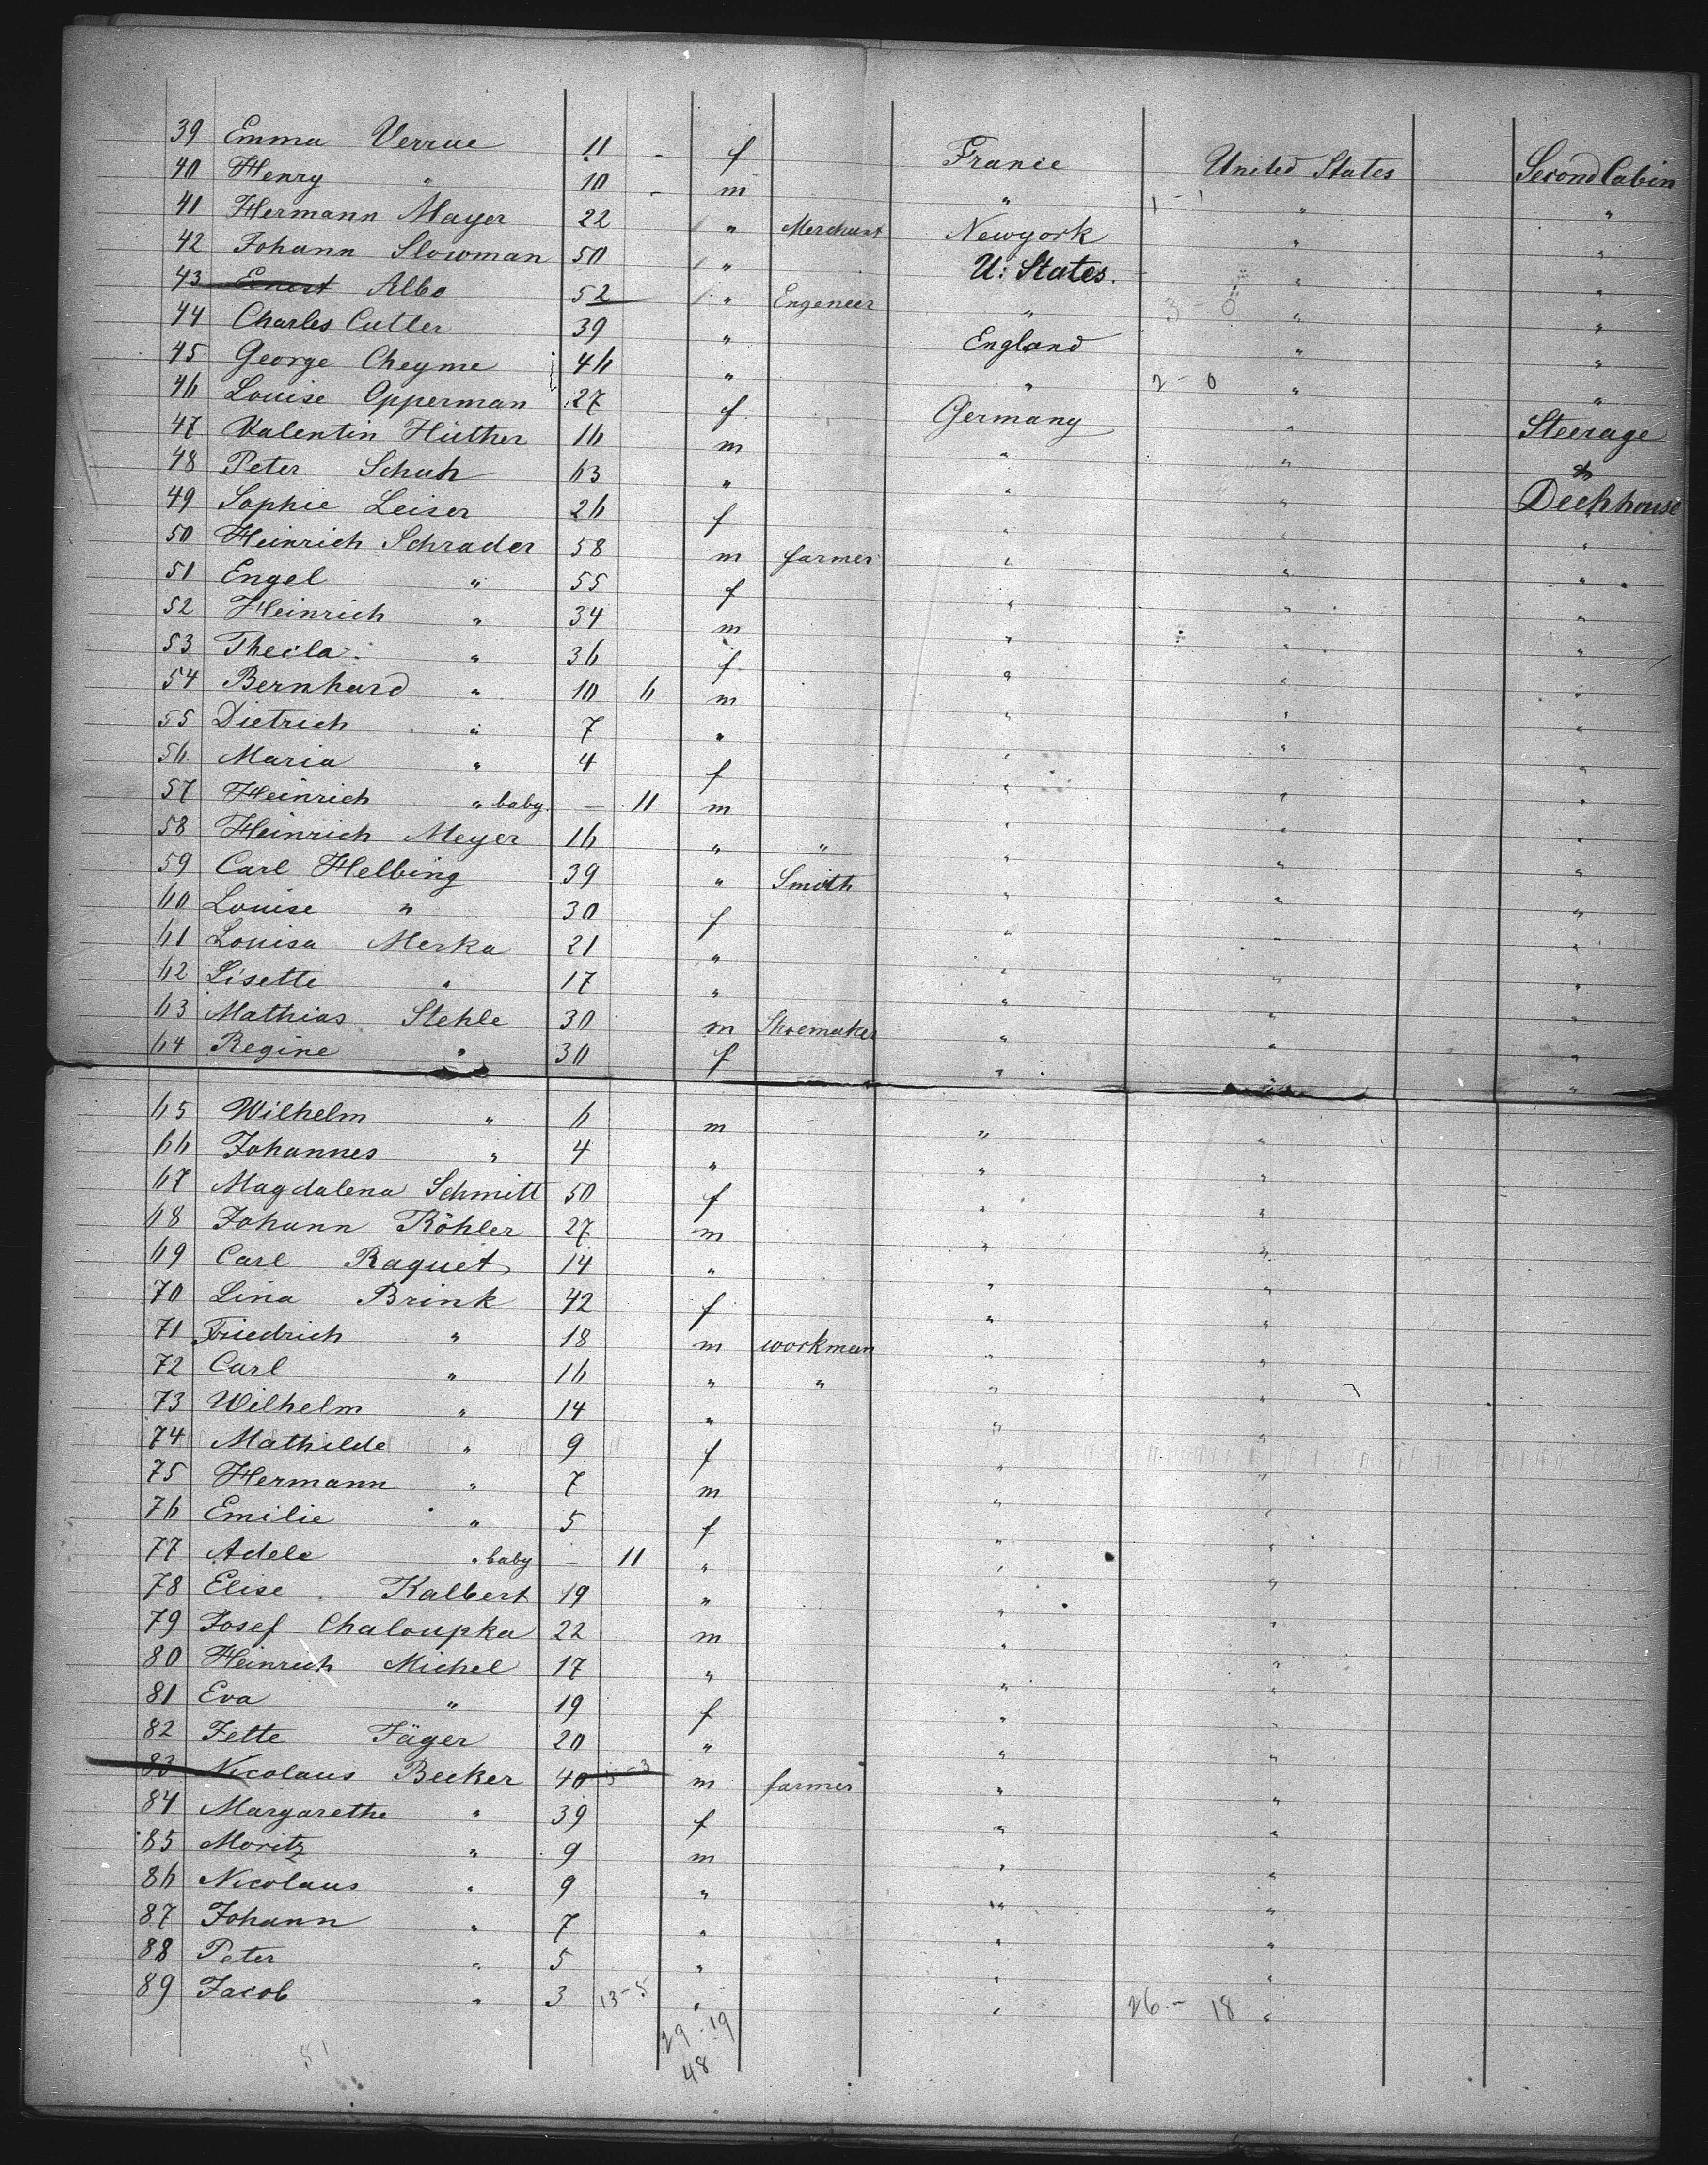 39 Emma Verrue 11 - f France United States Second Cabin
40 Henry " 10 - m " 1 - 1 " "
41 Hermann Mayer 22 " Merchant Newyork " "
42 Johann Slowman 50 " U: States. " "
43 Ernest Albo 52 " Engeneer " 3 - 0 " "
44 Charles Cutler 39 " England " "
45 George Cheyme 46 " " 2 - 0 " "
46 Louise Opperman 27 f Germany " Steerage
47 Valentin Hüther 16 m " "
48 Peter Schuh 63 " " " Deckhouse
49 Sophie Leiser 26 f " " "
50 Heinrich Schrader 58 m farmer " " "
51 Engel " 55 f " " "
52 Heinrich " 34 m " " "
53 Thecla " 36 f " " "
54 Bernhard " 10 6 m " " "
55 Dietrich " 7 " " " "
56 Maria " 4 f " " "
57 Heinrich " baby. - 11 m " " "
58 Heinrich Meyer 16 " " " " "
59 Carl Helbing 39 " Smith " " "
60 Louise " 30 f " " "
61 Louisa Merka 21 " " " "
62 Lisette " 17 " " " "
63 Mathias Stehle 30 m Shoemaker " " "
64 Regine " 30 f " "
65 Wilhelm " 6 m " "
66 Johannes " 4 " " "
67 Magdalena Schmitt 50 f " "
68 Johann Köhler 27 m " "
69 Carl Raquet 14 " " "
70 Lina Brink 42 f " "
71 Friedrich " 18 m workman " "
72 Carl " 16 " " " "
73 Wilhelm " 14 " " "
74 Mathilde " 9 f " "
75 Hermann " 7 m " "
76 Emilie " 5 f " "
77 Adele " baby - 11 " " "
78 Elise Kalbert 19 " " "
79 Josef Chaloupka 22 m " "
80 Heinrich Michel 17 " " "
81 Eva " 19 f " "
82 Jette Jäger 20 " " "
83 Nicolaus Becker 40 m farmer " "
84 Margarethe " 39 f " "
85 Moritz " 9 m " "
86 Nicolaus " 9 " " "
87 Johann " 7 " " "
88 Peter " 5 " " "
89 Jacob " 3 13-5 " " 26 - 18 "
29 - 19
48